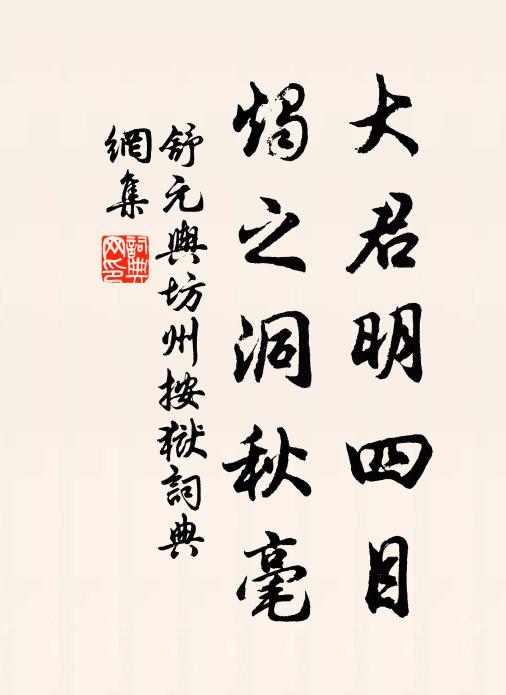 大君明四目
燭之洞秋毫
舒元輿坊州按獄詞典
網集
詞典网印